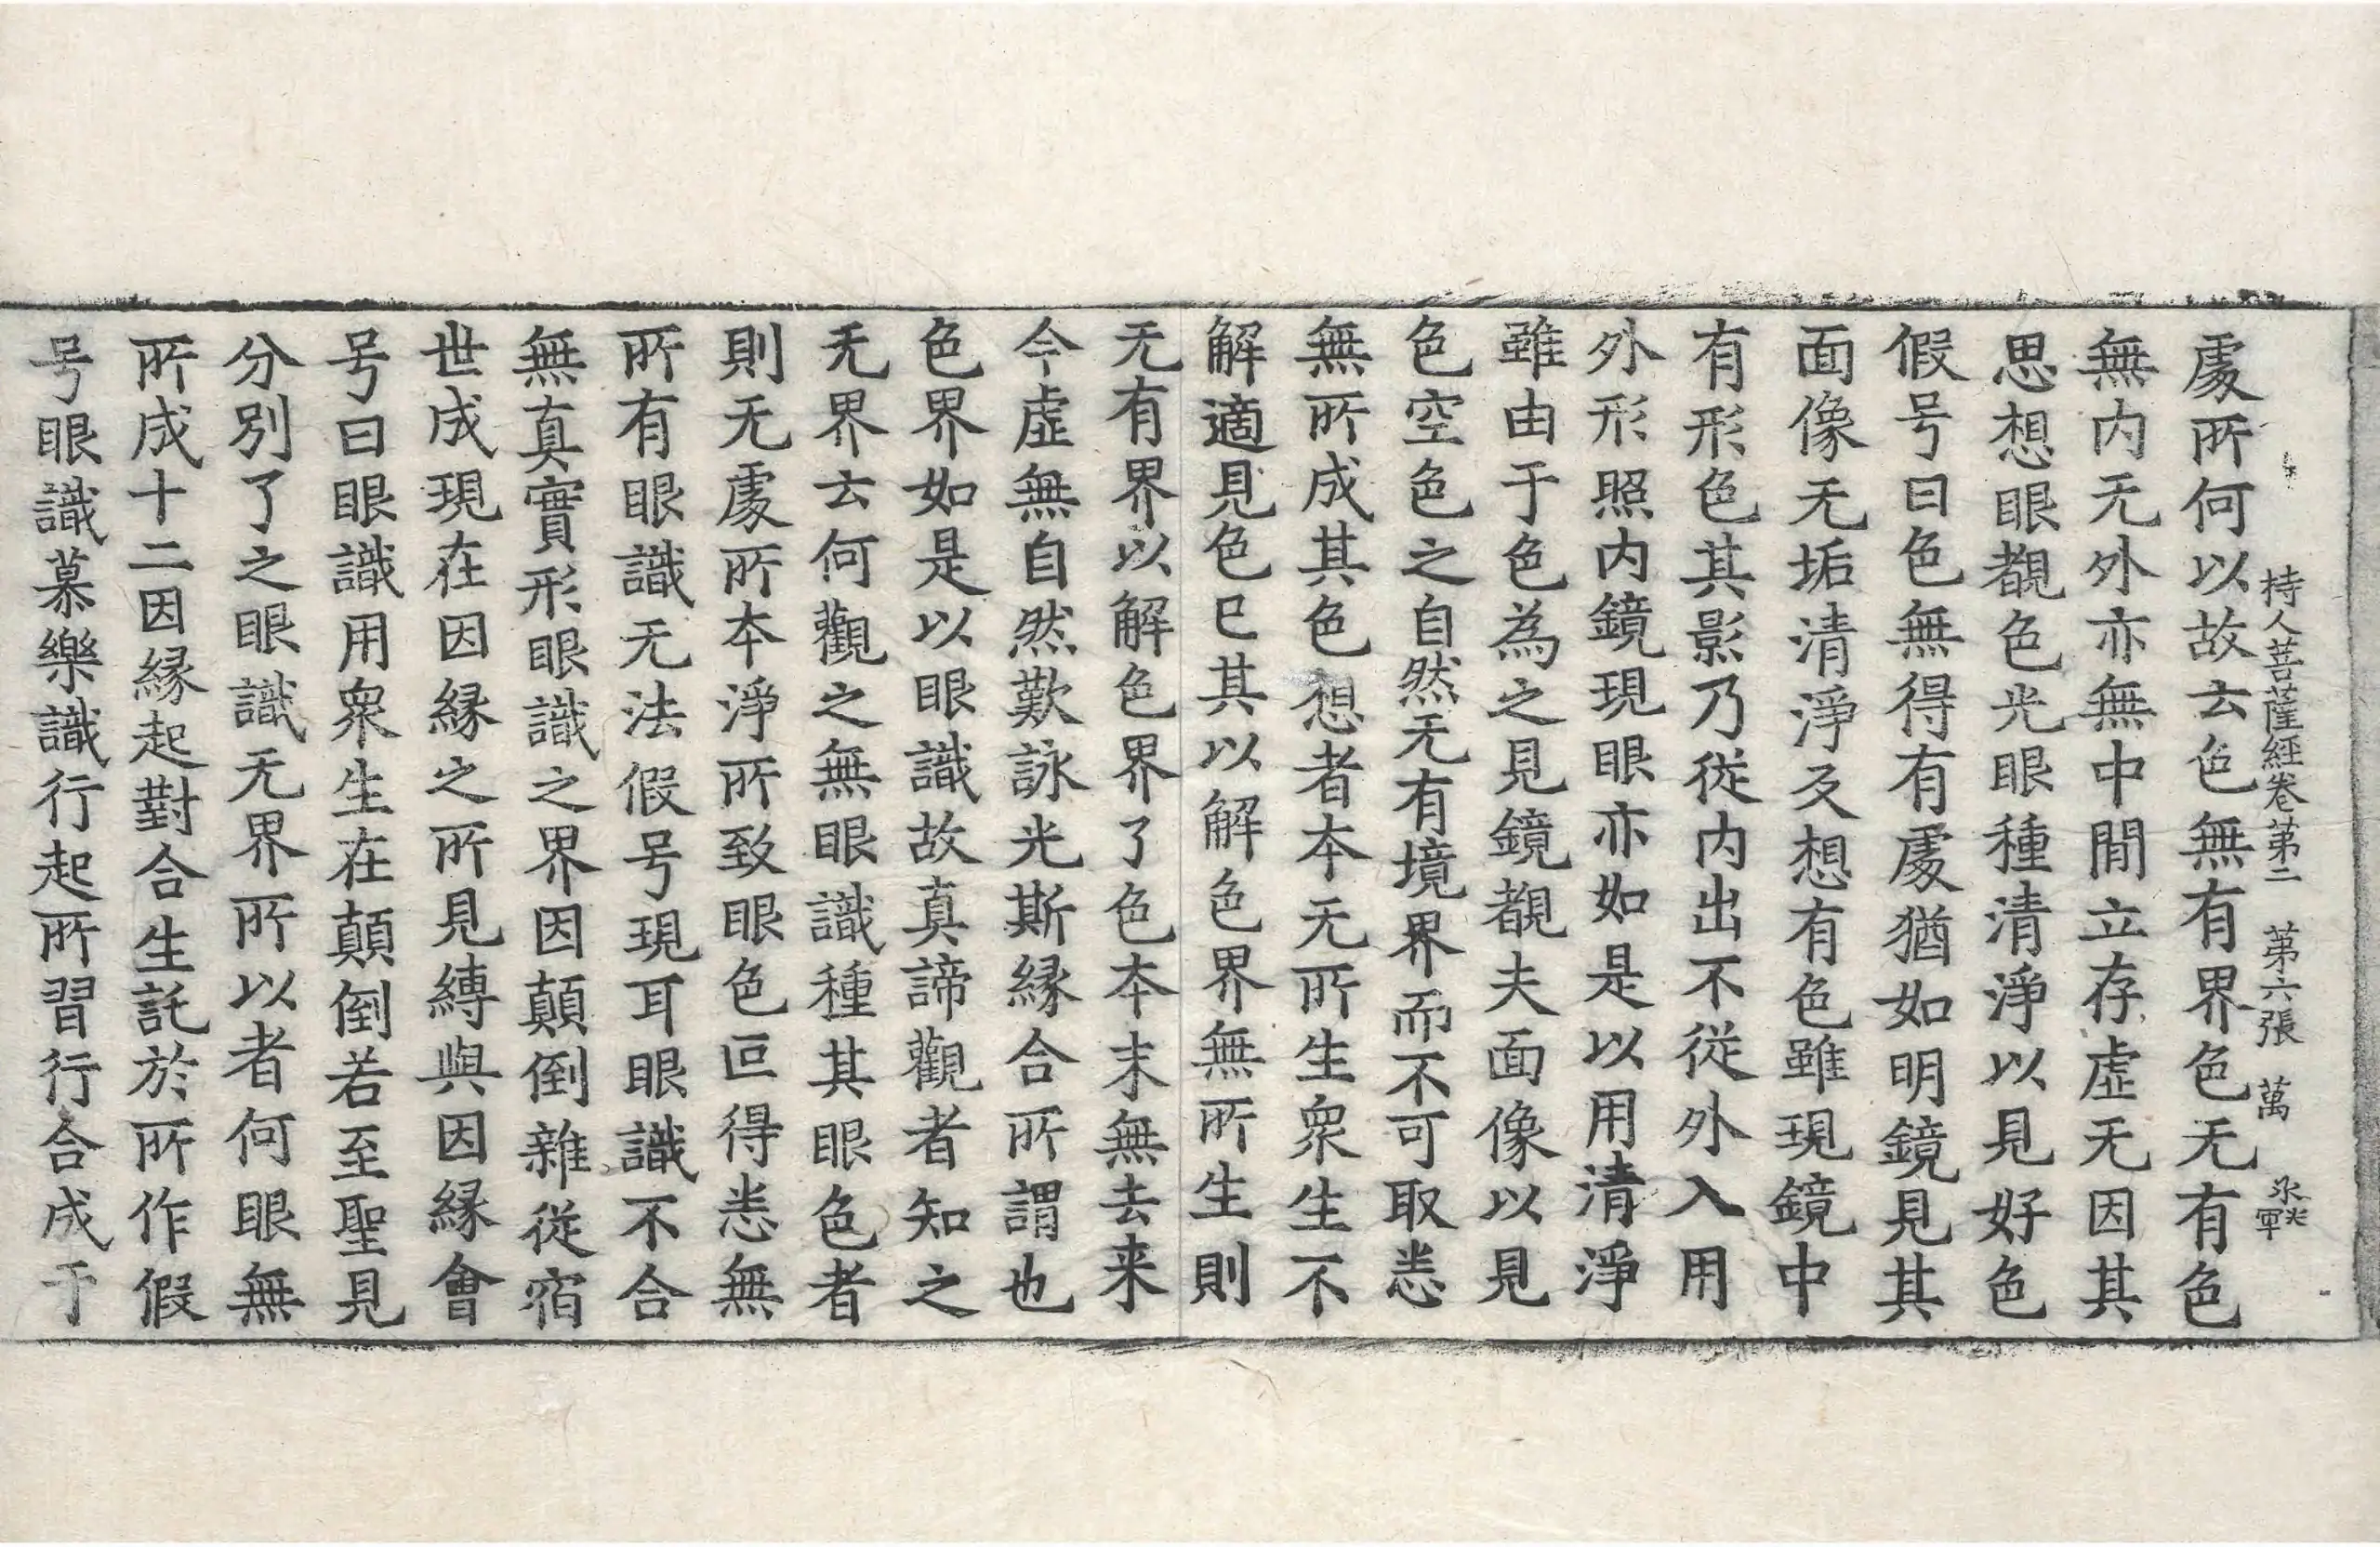 持人菩薩經卷第二 第六張 萬
處所何以故去色無有界色无有色
無内无外亦無中間立存虛无因其
思想眼覩色光眼種清淨以見好色
假号曰色無得有處猶如明鏡見其
面像无垢清淨又想有色雖現鏡中
有形色其影乃從内出不從外入用
外形照内鏡現眼亦如是以用清淨
雖由于色為之見鏡覩夫面像以見
色空色之自然无有境界而不可取悉
無所成其色想者本无所生衆生不
解適見色已其以解色界無所生則
无有界以解色界了色本末無去来
今虛無自然歎詠光斯縁合所謂也
色界如是以眼識故真諦觀者知之
无界去何觀之無眼識種其眼色者
則无處所本淨所致眼色叵得悉無
所有眼識无法假号現耳眼識不合
無真實形眼識之界因顛倒雜從宿
世成現在因縁之所見縛與因縁會
号曰眼識用衆生在顛倒若至聖見
分別了之眼識无界所以者何眼無
所成十二因縁起對合生託於所作假
号眼識慕樂識行起所習行合成于